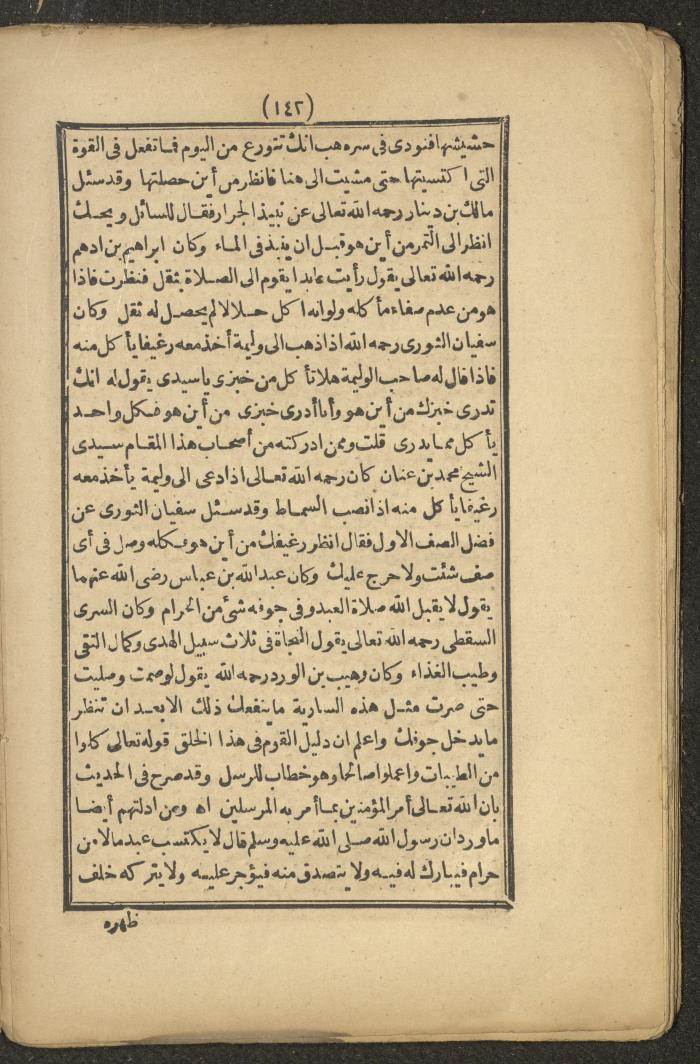 (١٤٢)
حشيشها فنودى فى سره هب انك تتورع من اليوم فما تفعل فى القوة
التى اكتسيتها حتى مشيت الى هنا فانظر من أين حصلتها وقد سئل
مالك بن دينار رحمه الله تعالى عن نبيذ الجرار فقال للسائل ويحك
انظر الى التمر من أين هو قبل ان ينبذ فى الماء وكان ابراهيم بن ادهم
رحمه الله تعالى يقول رأيت عابدا يقوم الى الصلاة بثقل فنظرت فاذا
هو من عدم صفاء مأكله ولوانه اكل حلالا لم يحصل له ثقل وكان
سفيان الثورى رحمه الله اذا ذهب الى وليمة أخذ معه رغيفا يأكل منه
فاذا قال له صاحب الوليمة هلا تأكل من خبزى ياسيدى يقول له انك
تدرى خبزك من أين هو وأنا أدرى خبزى من أين هو فكل واحد
يأكل مما يدرى قلت وممن ادركته من أصحاب هذا المقام سيدى
الشيخ محمد بن عنان كان رحمه الله تعالى اذا دعى الى وليمة يأخذ معه
رغيفا يأكل منه اذا نصب السماط وقد سئل سفيان الثورى عن
فضل الصف الاول فقال انظر رغيفك من أين هو فكله وصل فى أى
صف شئت ولا حرج عليك وكان عبد الله بن عباس رضى الله عنهما
يقول لا يقبل الله صلاة العبد وفى جوفه شئ من الحرام وكان السرى
السقطى رحمه الله تعالى يقول النجاة فى ثلاث سبيل الهدى وكمال التقى
وطيب الغذاء وكان وهيب بن الورد رحمه الله يقول لو صمت وصليت
حتى صرت مثل هذه السارية ما ينفعك ذلك الا بعد ان تنظر
ما يدخل جوفك واعلم ان دليل القوم فى هذا الخلق قوله تعالى كلوا
من الطيبات واعملوا صالحا وهو خطاب للرسل وقد صرح فى الحديث
بان الله تعالى أمر المؤمنين بما أمر به المرسلين اه ومن ادلتهم أيضا
ما ورد ان رسول الله صلى الله عليه وسلم قال لا يكتسب عبد مالا من
حرام فيبارك له فيه ولا يتصدق منه فيؤجر عليه ولا يتركه خلف
ظهره